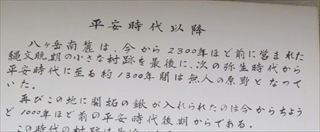 平安時代以降
八ヶ岳南麓は、今から2300年ほど前に営まれた
縄文晩期の小さな村跡を最後に、次の弥生時代から
平安時代に至る約1300年間は無人の原野となって
いた。
再びこの地に開拓の鍬が入れられたのは今からちょう
ど1000年ほど前の平安時代後期からである。
この時代の村跡は